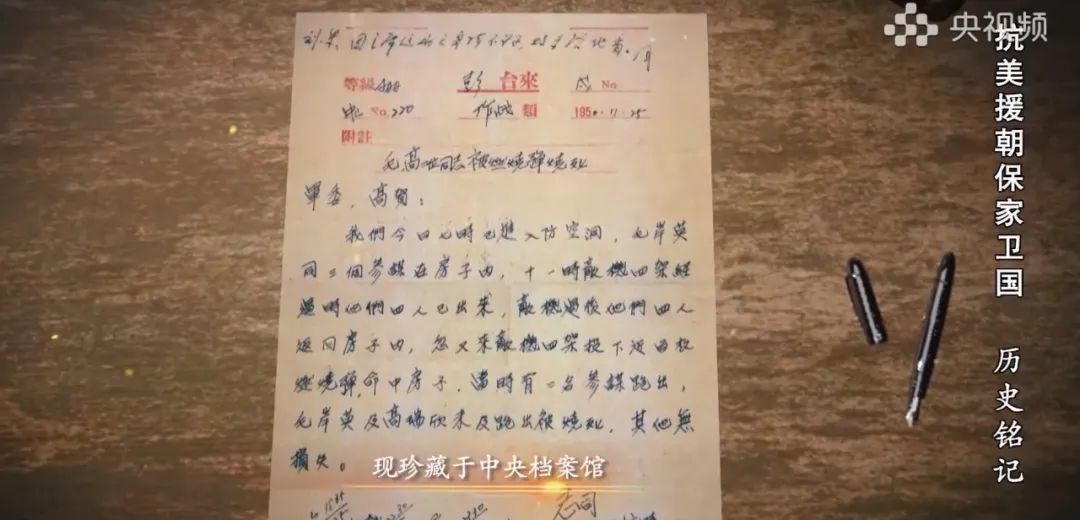 央视频
抗美援朝保家卫国 历史铭记
等級 彭 台來 No
No. 220 作战 類 1950.11.25
附註
毛高二同志被燃燒彈燒死
軍委，高賀：
我們今日七時已進入防空洞，毛岸英
同三個參謀在房子内，十一時敵機四架經
過時他們四人已出來，敵機過後他們四人
返回房子内，忽又來敵機四架投下近百枚
燃燒彈，命中房子，當時有二名參謀跑出，
毛岸英及高瑞欣未及跑出被燒死，其他無
損失。
现珍藏于中央档案馆